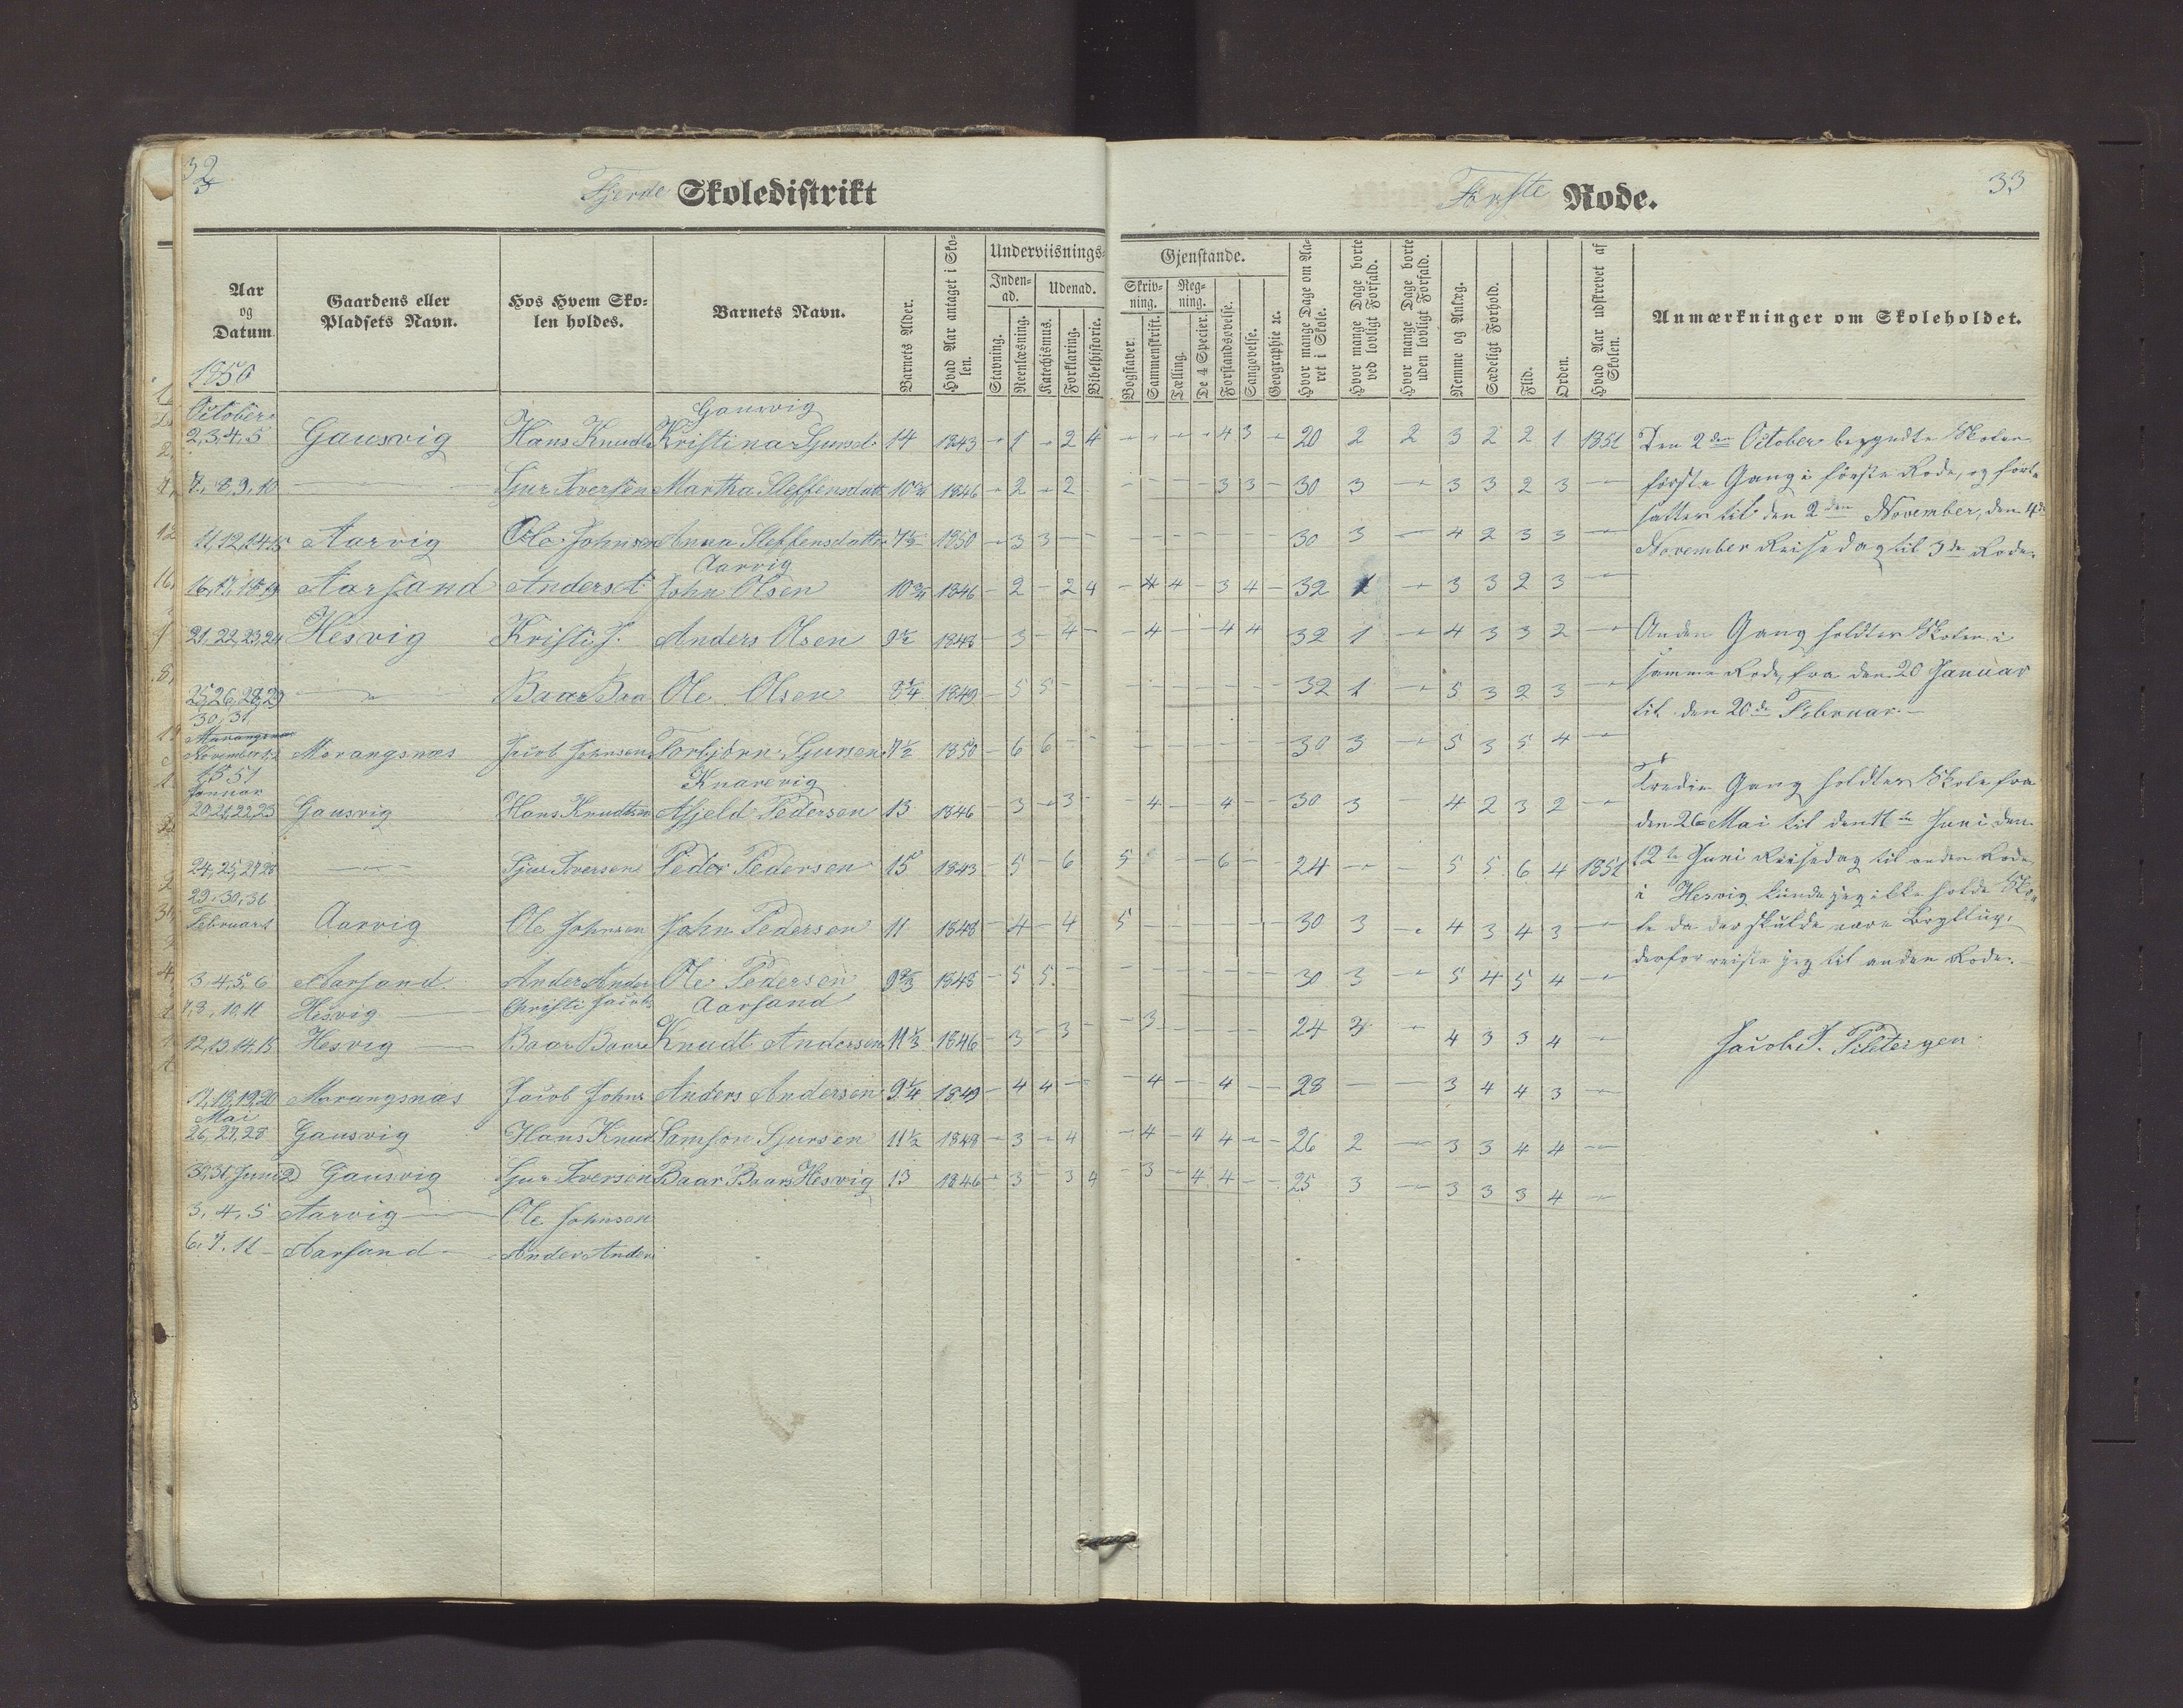 32
Fjerde Skoledistrikt
Aar og Datum
Gaardens eller Pladsets Navn.
Hos Hvem Skolen holdes.
Barnets Navn.
Barnets Alder.
Hvad Aar antaget i Skolen.
Underviisnings-
Inden-ad.
Udenad.
Stavning.
Reenlæsning.
Katechismus.
Forklaring.
Bibelhistorie.
1850
October
Gausvig
2,3,4,5 Gausvig Hans Knudts Kristina Sjursd 14 1843 - 1 - 2 4
7, 8, 9, 10 Sjur Iversen Martha Steffensdatt 10¾ 1846 - 2 - 2
11,12,14,15 Aarvig Ole Johnsen Anna Steffensdatter 7½ 1850 - 3 3 - -
Aarvig
16,17,18,19 Aarsand Anders A John Olsen 10¾ 1846 - 2 - 2 4
21,22,23,24 Hesvig Kristi J. Anders Olsen 9½ 1848 - 3 - 4 -
25,26,28,29 Baar Baa Ole Olsen 8¼ 1849 - 5 5 -
30,31
November 1,2 Morangsnæs Jacob Johnsen Torbjørn Sjursen 7½ 1850 - 6 6 - -
1851
Januar
Knarevig
20,21,22,23 Gausvig Hans Knudtsen Afjeld Pedersen 13 1846 - 3 - 3 -
24,25,27,28 Sjur Iversen Peder Pedersen 15 1843 - 5 - 6
29,30,31
Februar 1 Aarvig Ole Johnsen John Pedersen 11 1848 - 4 - 4
3,4,5,6 Aarsand Ander Ander Ole Pedersen 9⅔ 1848 - 5 5 -
7,8,10,11 Hesvig Christi Jacob Aarsand
12,13,14,15 Hesvig Baar Baars Knudt Andersen 11⅓ 1846 - 3 - 3 -
17,18,19,20 Morangsnæs Jacob Johns Anders Andersen 9¼ 1849 - 4 4 -
Mai
26,27,28 Gausvig Hans Knud Samson Sjursen 11½ 1848 - 3 - 4
30,31, Juni 2 Gausvig Sjur Iversen Baar Baars Hesvig 13 1846 - 3 - 3 4
3, 4, 5 Aarvig Ole Johnsen
6, 7, 11 Aarsand Ander Anders
33
Første Rode.
Gjenstande.
Skrivning.
Regning.
Bogstaver.
Sammenskrift.
Tælling.
De 4 Specier.
Forstandsøvelse.
Sangøvelse.
Geographie ɾc.
Hvor mange Dage om Aaret i Skole.
Hvor mange Dage borte ved lovligt Forfald.
Hvor mange Dage borte uden lovligt Forfald.
Nemme og Anlæg.
Sædeligt Forhold.
Flid.
Orden.
Hvad Aar udskrevet af Skolen.
Anmærkninger om Skoleholdet.
- - - - 4 3 - 20 2 2 3 2 2 1 1851
- - - - 3 3 - 30 3 - 3 3 2 3 -
- - - - - - - 30 3 - 4 2 3 3 -
- 4 4 - 3 4 - 32 1 - 3 3 2 3 -
- 4 - - 4 4 32 1 - 4 3 3 2 -
- - - - - - 32 1 - 5 3 2 3 -
- - - - - - - 30 3 - 5 3 5 4 -
- 4 - - 4 - - 30 3 - 4 2 3 2 -
5 - - 6 - - 24 - - 5 5 6 4 1851
5 - - - - - - 30 3 - 4 3 4 3 -
- - - - - - - 30 3 - 5 4 5 4 -
- 3 - - - - - 24 4 - 4 3 3 4 -
4 - - 4 - - 28 - - 3 4 4 3 -
- 4 - 4 4 - - 26 2 - 3 3 4 4 -
- 3 - 4 4 - - 25 3 - 3 3 3 4 -
Den 2den October begyndte Skolen
første Gang i første Rode, og fort-
sattes til den 2den November, den 4de
November Reisedag til 3de Rode.
Anden Gang holdtes Skolen i
samme Rode, fra den 20 Januar
til den 20de Februar.
Tredie Gang holdtes Skole fra
den 26 Mai til den 11te Juni den
12te Juni Reisedag til anden Rode
i Hesvig kunde jeg ikke holde Sko-
le da der skulde være Bryllup,
derfor reiste jeg til anden Rode.